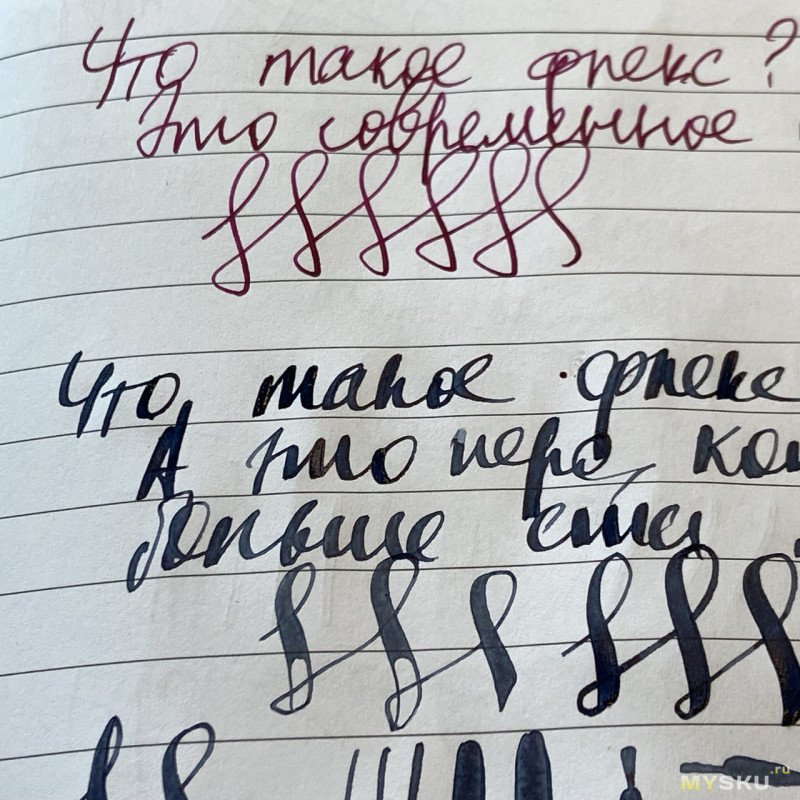 Что такое флекс?
Это современное
Что такое флекс
А это перо, ко
больше ста
MYSKU.ru